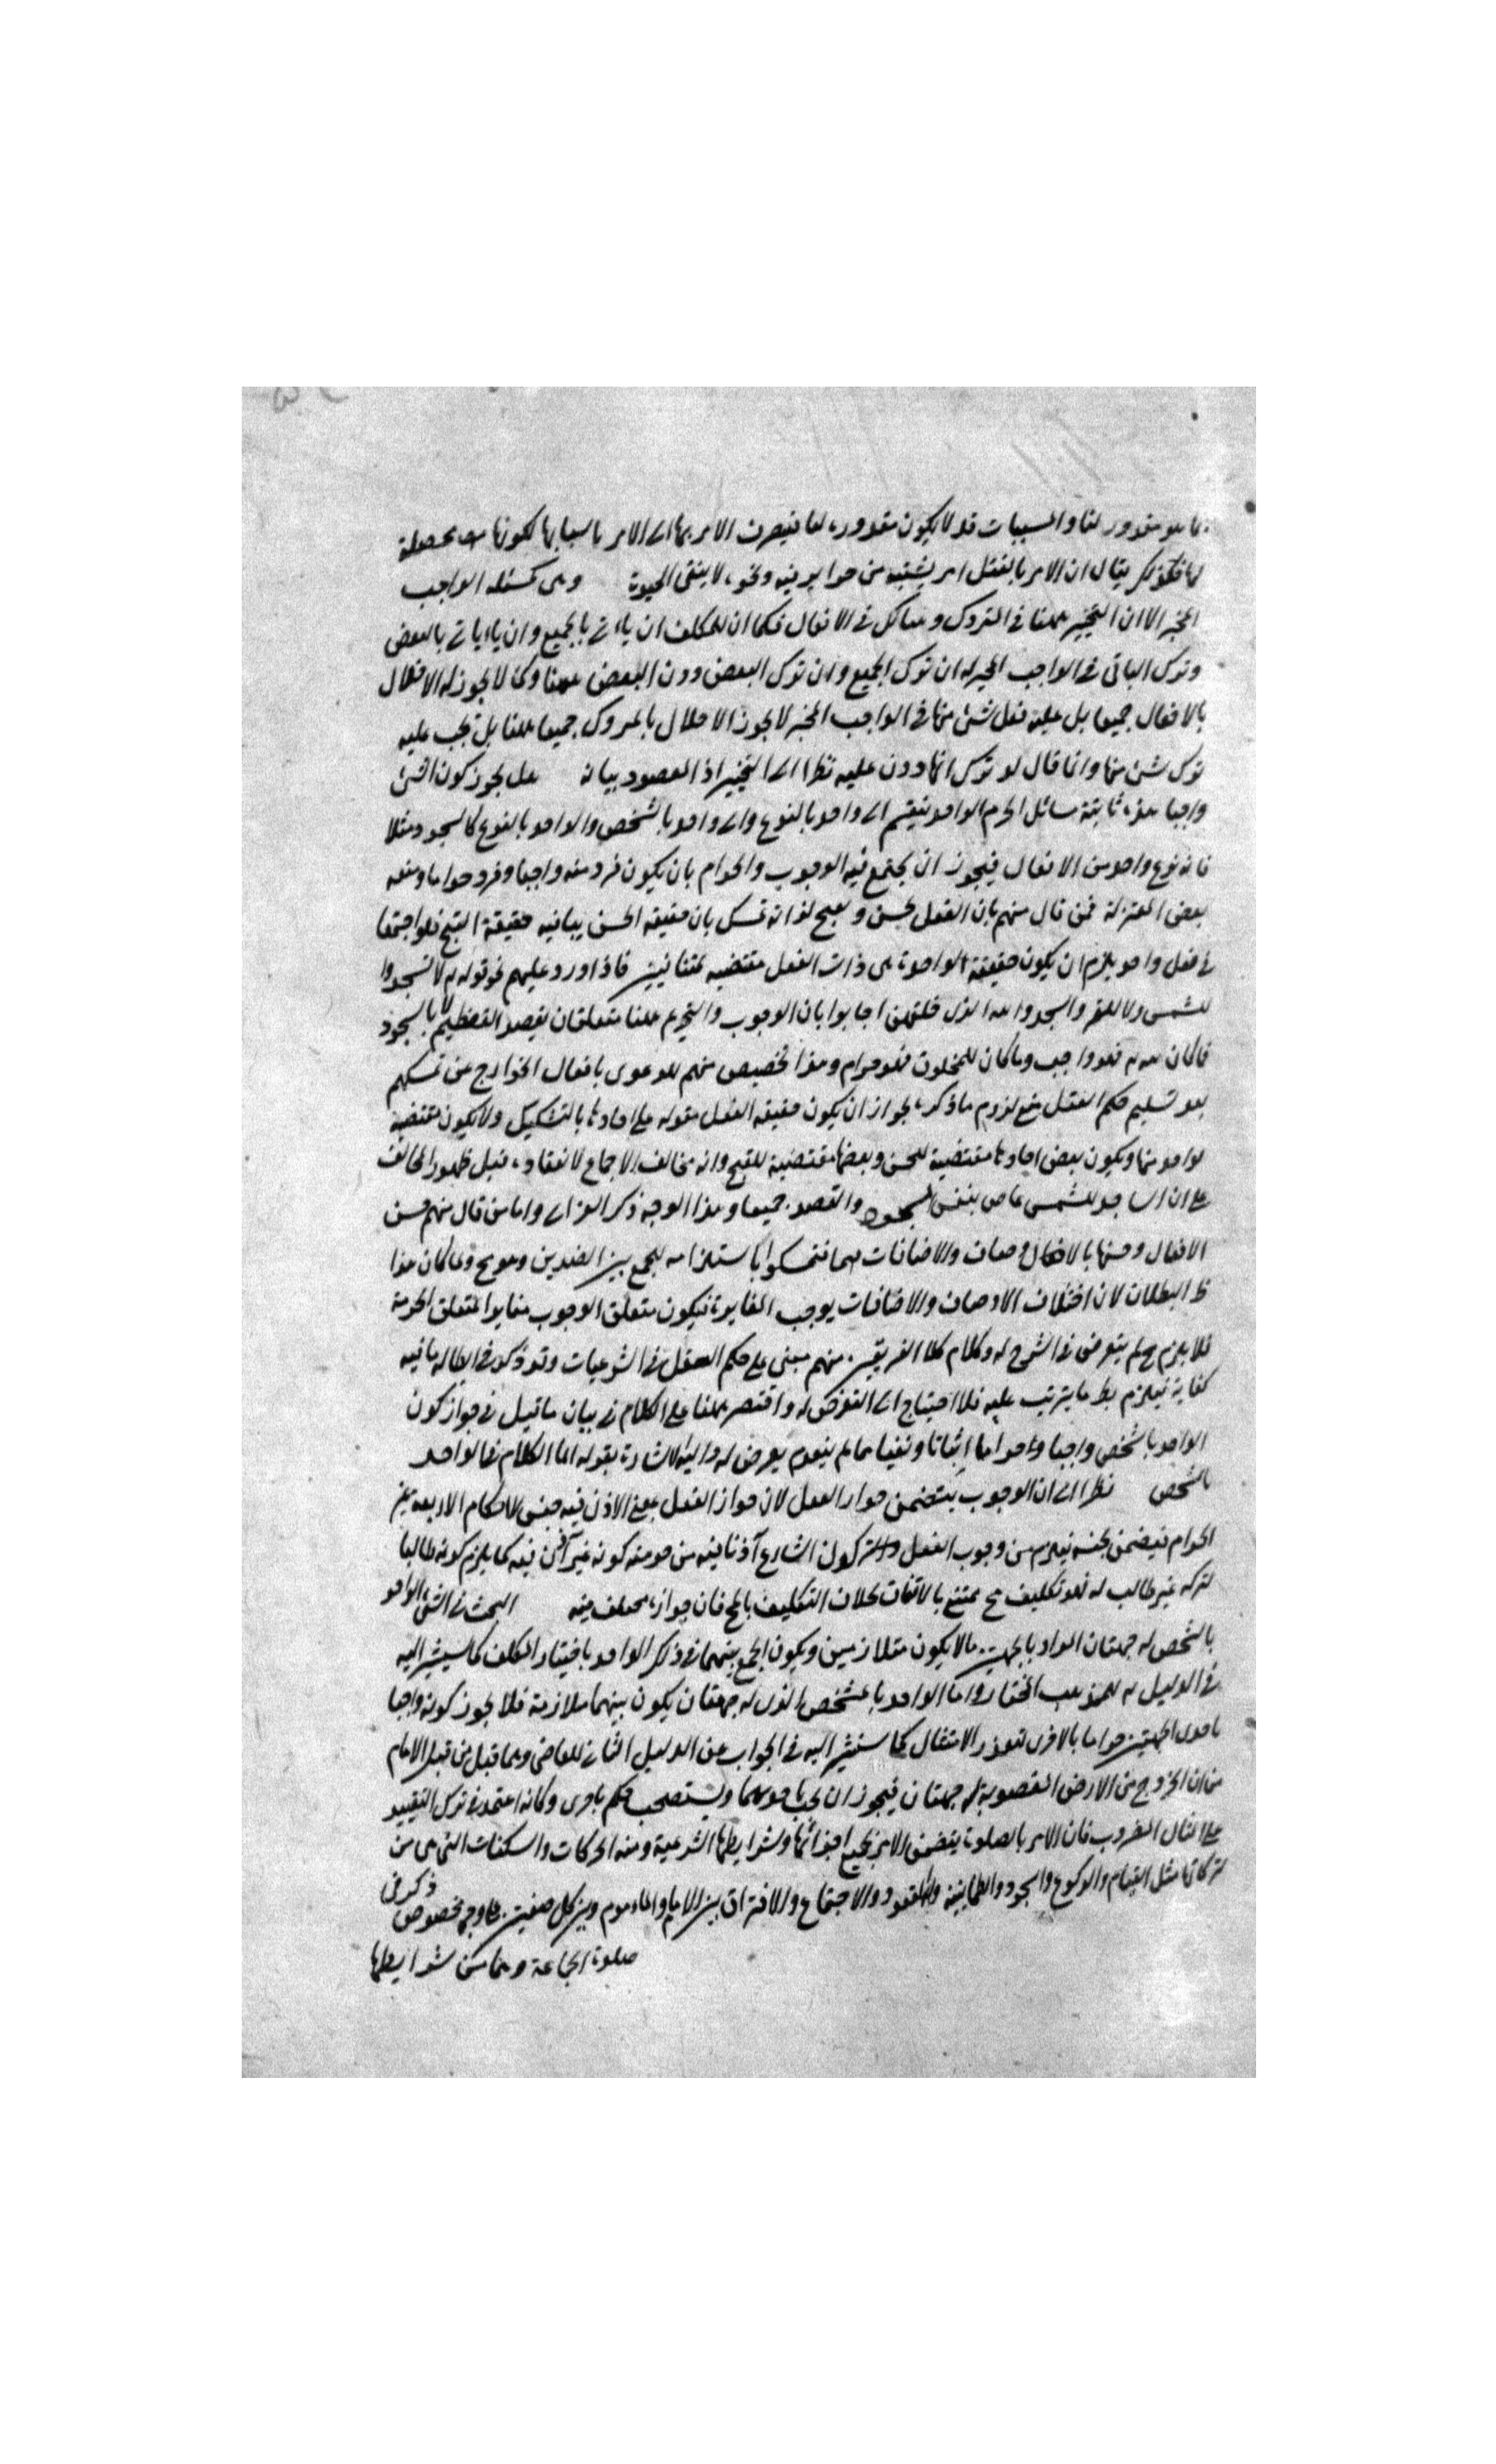 ما هو مقدور لنا والمسببات قد لا يكون مقدورة لنا فينصرف الامر بها الى الامر باسبابها لكونها محصلة
لها فلذلك يقال ان الامر بالقتل امر يشتبه من حز ونحوه لا ينفى الحيوة وهى كمسئلة الواجب
المخير الا ان التخيير ههنا فى التروك وهناك فى الافعال فكما ان للمكلف ان ياتى بالجميع وان ياتى بالبعض
وترك الباقى فى الواجب المخير له ان ترك الجميع وان ترك البعض دون البعض ههنا وكما لا يجوز له الاخلال
بالافعال جميعا بل عليه فعل شئ منها فى الواجب المخير لا يجوز الاخلال بالتروك جميعا ههنا بل يجب عليه
ترك شئ منها وانما قال لو ترك انها دون عليه نظرا الى التخيير اذ المقصود بيانه هل يجوز كون الشئ
واجبا هذه ثانية مسائل الحرام الواحد ينقسم الى واحد بالنوع والى واحد بالشخص والواحد بالنوع كالسجود مثلا
فانه نوع واحد من الافعال فيجوز ان يجتمع فيه الوجوب والحرام بان يكون فرد منه واجبا وفرد حراما ومنعه
بعض المعتزلة فمن قال منهم بان الفعل يحسن ويقبح لذاته تمسك بان حقيقة الحسن يباينه حقيقة القبح فلو اجتمعا
فى فعل واحد يلزم ان يكون حقيقة الواحدة هى ذات الفعل مقتضيه لمتنافيين فاذا اورد عليهم نحو قوله لا تسجدوا
للشمس ولا للقمر واسجدوا لله الذى خلقهن اجابوا بان الوجوب والتحريم ههنا متعلقان بقصد التعظيم لا بالسجود
فما كان لله فهو واجب وما كان للمخلوق فهو حرام وهذا تخصيص منهم للدعوى بافعال الجوارح عن تمسكهم
بعد تسليم حكم العقل منع لزوم ما ذكره لجواز ان يكون حقيقة الفعل مقوله على احادها بالتشكيك ولا يكون مقتضيه
لواحد منها ويكون بعض احادها مقتضية للحسن وبعضها مقتضية للقبح وانه مخالف الاجماع لانعقاده قبل ظهور المخالف
على ان الساجد للشمس عاص بنفس السجود والقصد جميعا وهذا الوجه ذكر الغزالى واما من قال منهم حسن
الافعال وحسنها بالاوصاف والاضافات فتمسكوا باستلزامه للجمع بين الضدين وهو مح ولما كان هذا
ظ البطلان لان اختلاف الاوصاف والاضافات يوجب المغايرة فيكون متعلق الوجوب مغايرا لمتعلق الحرمة
فلا يلزم مح لم يتعرض فى الشرح له وكلام كلا الفريقين منهم مبنى على حكم العقل فى الشرعيات وقد ذكر فى ابطاله ما فيه
كفاية فيلزم بط ما يترتب عليه فلا احتياج الى التعرض له واقتصر ههنا على الكلام فى بيان ما قيل فى جواز كون
الواحد بالشخص واجبا وحراما اثباتا ونفيا مما لم يتعرض له واليه الاشارة بقوله اما الكلام فى الواحد
بالشخص نظرا الى ان الوجوب يتضمن جواز الفعل لان جواز الفعل بمعنى الاذن فيه جنس للاحكام الاربعة غير
الحرام فيضمن جنسه فيلزم من وجوب الفعل والترك كون الشارع آذنا فيه من حرمته كونه غير آذن فيه كما يلزم كونه طالبا
لتركه غير طالب له فهو تكليف مح ممتنع بالاتفاق بخلاف التكليف بالمح فان جوازه مختلف فيه البحث فى الشئ الواحد
بالشخص له جهتان المراد بالجهتين ما لا يكون متلازمين ويكون الجمع بينهما فى ذلك الواحد باختيار المكلف كما سيشير اليه
فى الدليل للمذهب المختار واما الواحد بالشخص الذى له جهتان يكون بينهما ملازمة فلا يجوز كونه واجبا
باحدى الجهتين حراما بالاخرى لتعذر الامتثال كما سنشير اليه فى الجواب عن الدليل الثانى للقاضى وما قيل من قبل الامام
من ان الخروج من الارض المغصوبة له جهتان فيجوز ان يجب باحدهما ويستصحب حكم باخرى وكانه اعتمد فى ترك التقييد
على المثال المضروب فان الامر بالصلوة يتضمن الامر بجميع اجزائها وشرايطها الشرعية ومنه الحركات والسكنات التى هى من
مثل القيام والركوع والسجود والطمانينة والقعود والاجتماع والافتراق بين الامام والماموم وبين كل صفين على وجه مخصوص ذكر فى
صلوة الجماعة وهما من شرايطها